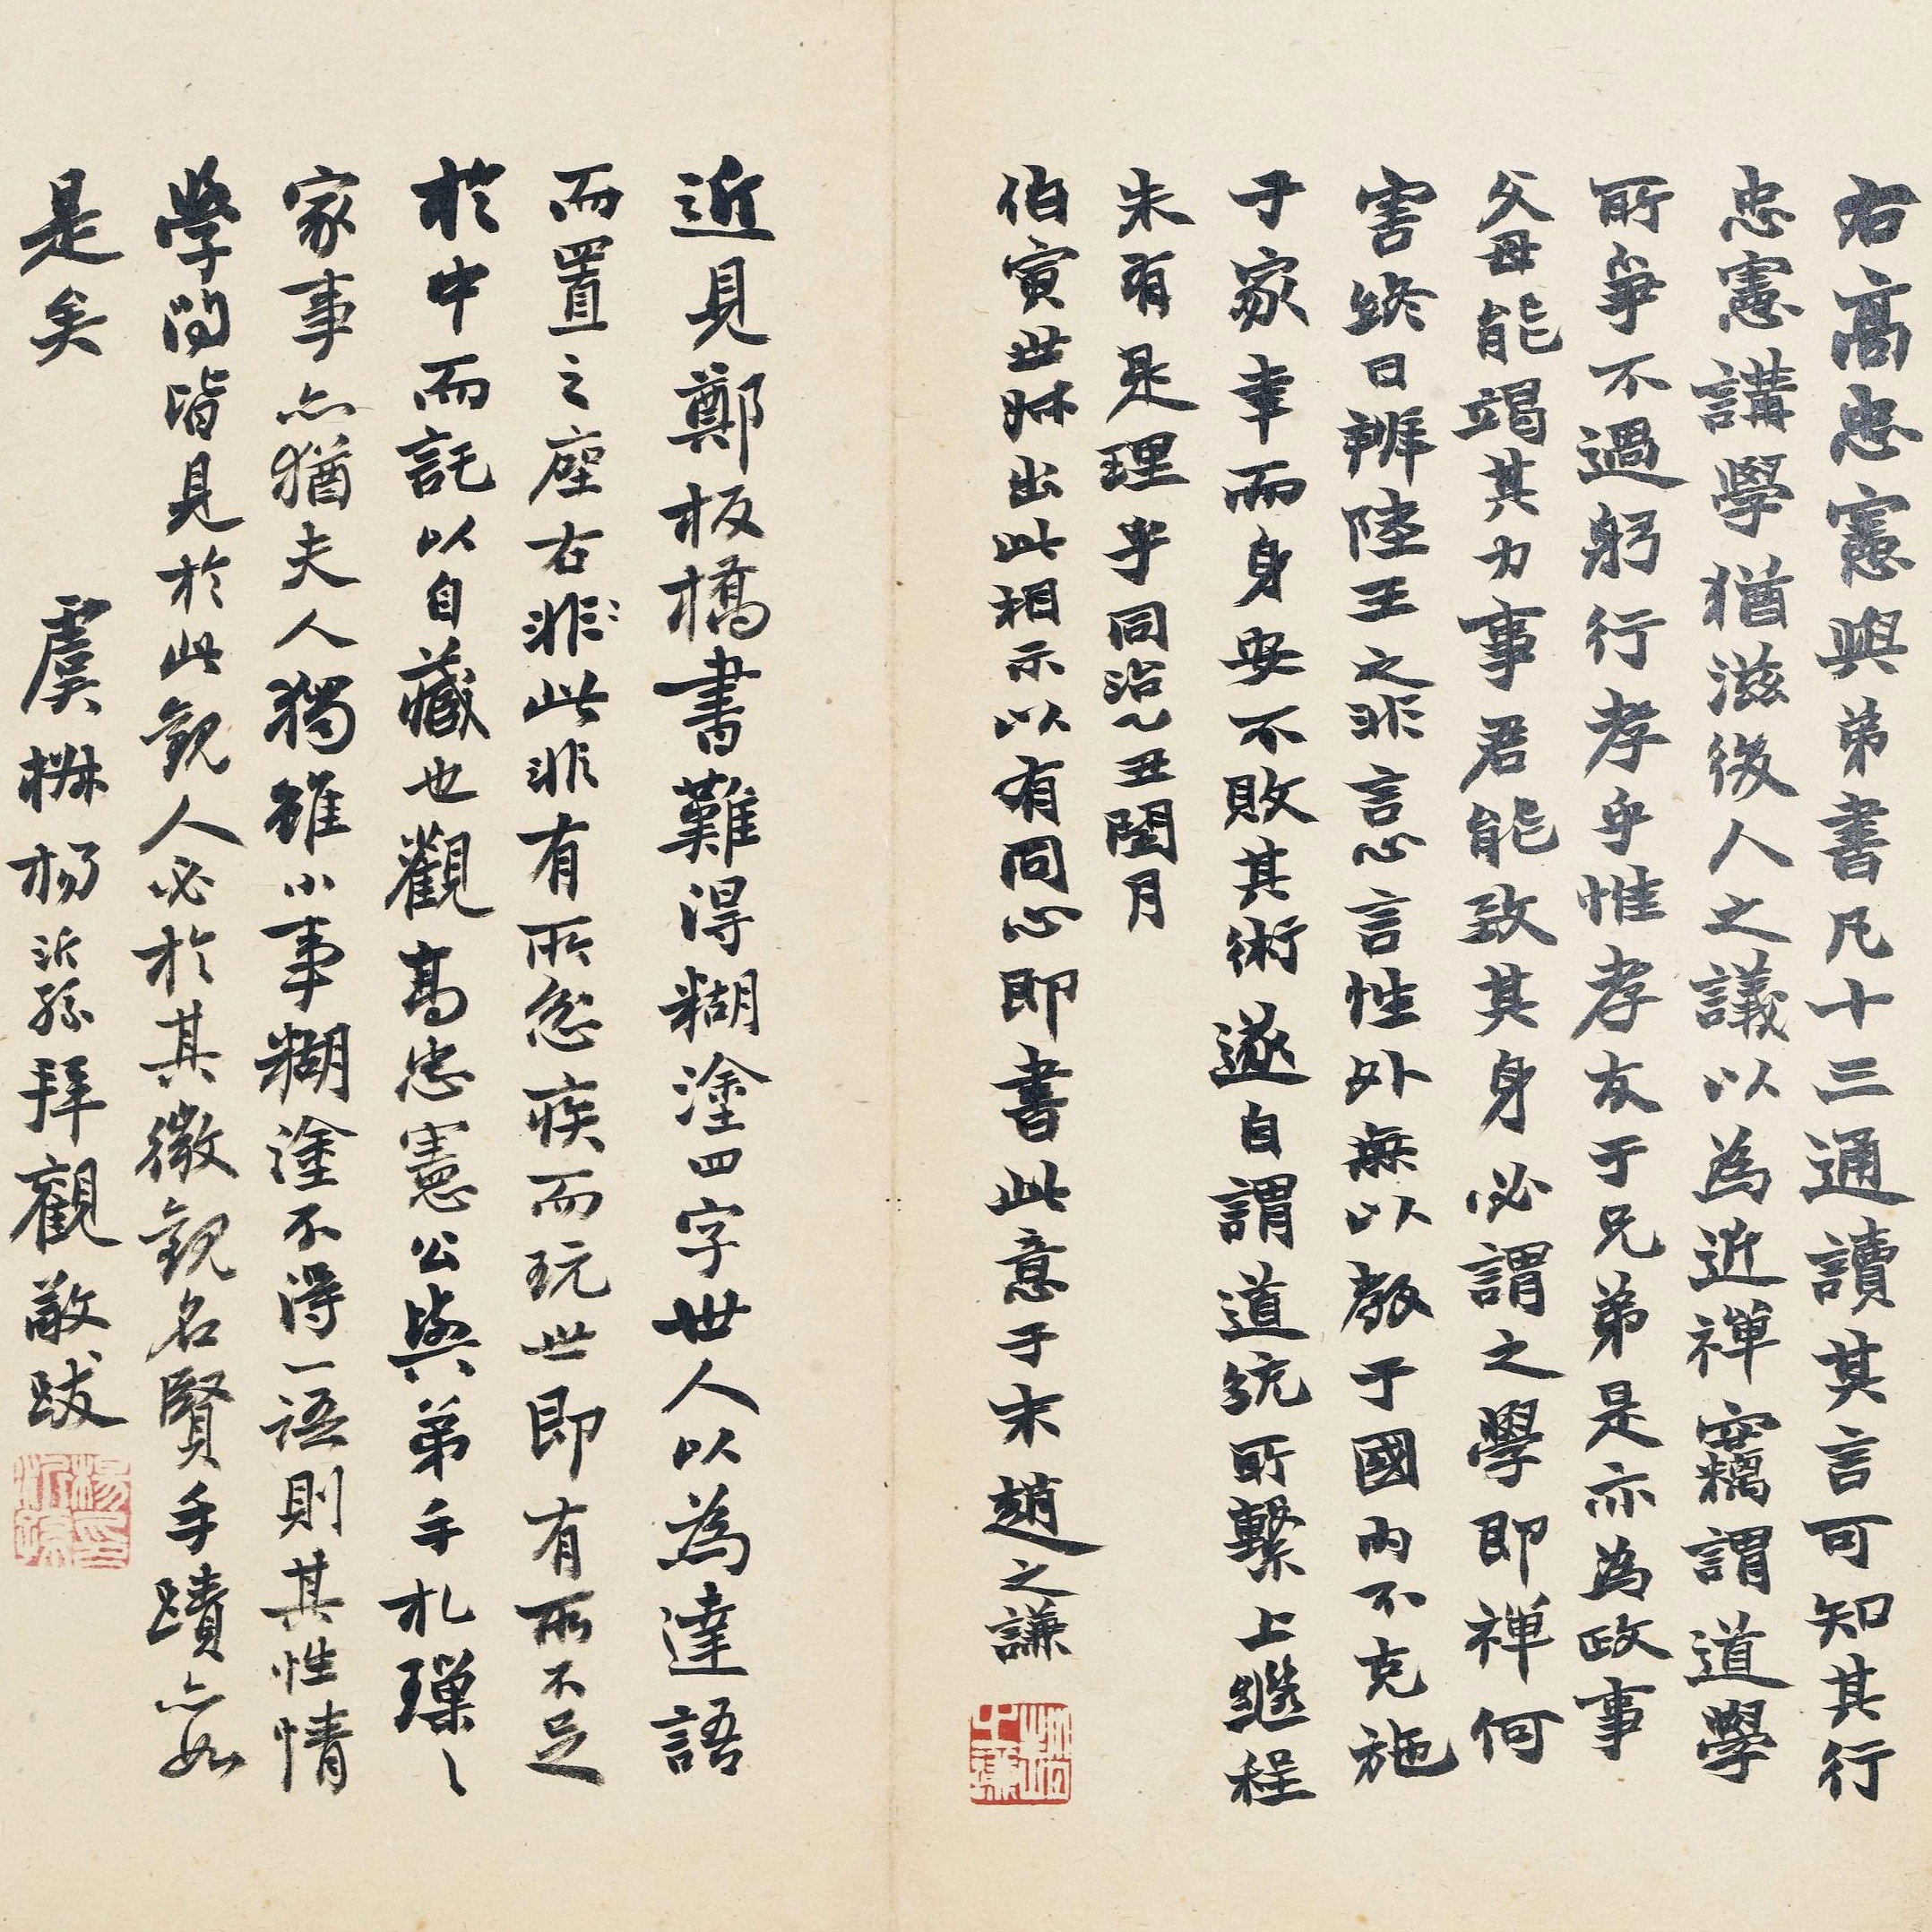 右高忠憲與弟書凡十三通讀其言可知其行
忠憲講學猶滋後人之議以為近禪竊謂道學
所爭不過躬行孝乎惟孝友于兄弟是亦為政事
父母能竭其力事君能致其身必謂之學即禪何
害終日辨陸王之非言心言性外無以教于國內不克施
于家幸而身安不敗其術遂自謂道統所繫上繼程
朱有是理乎同治乙丑閏月
伯寅世叔出此相示以有同心即書此意于末趙之謙
近見鄭板橋書難得糊塗四字世人以為達語
而置之座右非此非有所忿疾而玩世即有所不足
於中而託以自藏也觀高忠憲公與弟手札璅〻
家事亦猶夫人獨雖小事糊塗不得一語則其性情
學問皆見於此觀人必於其微觀名賢手蹟亦如
是矣
虞楙楊沂孫拜觀敬跋
楊沂孫印